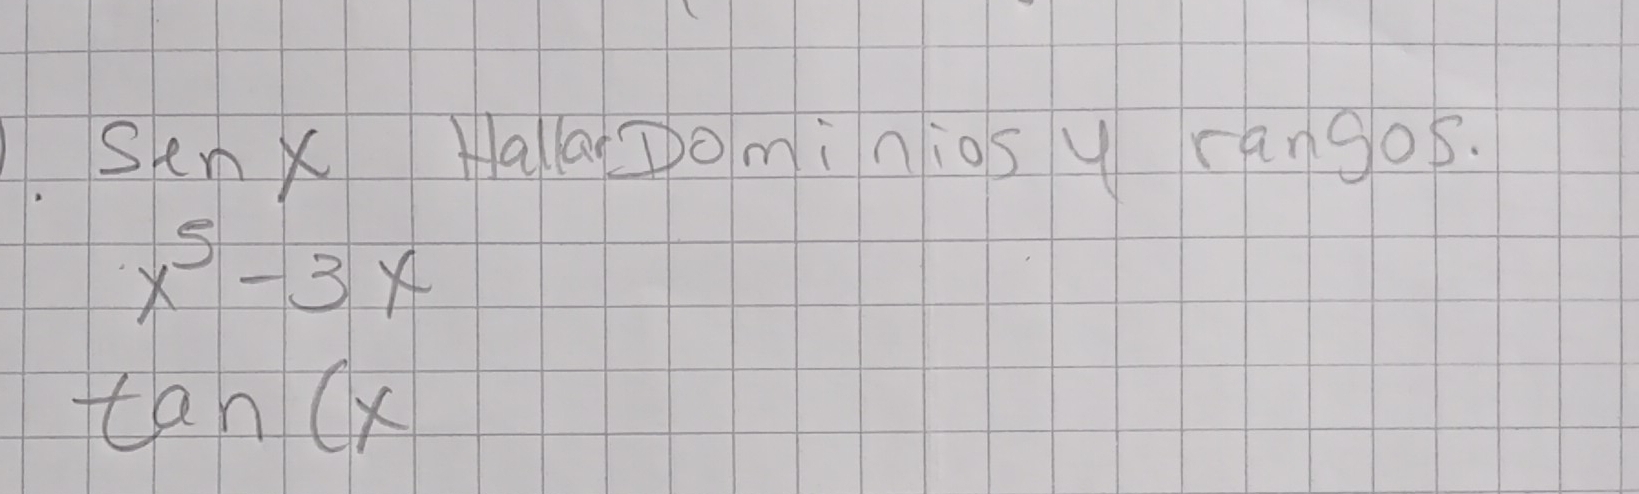 ). Sen x Hallar Dominios y rangos.
x⁵ - 3x
tan (x